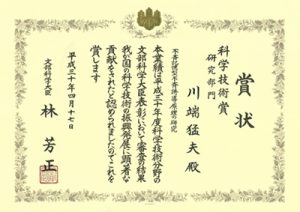 賞状
科学技術賞
研究部門
川端猛夫殿
不斉記憶型不斉誘導原理の研究
本業績は平成三十年度科学技術分野の
文部科学大臣表彰において審査の結果
我が国の科学技術の振興発展に顕著な
貢献をされたと認められましたのでこれを
賞します
平成三十年四月十七日
文部科学大臣
林芳正